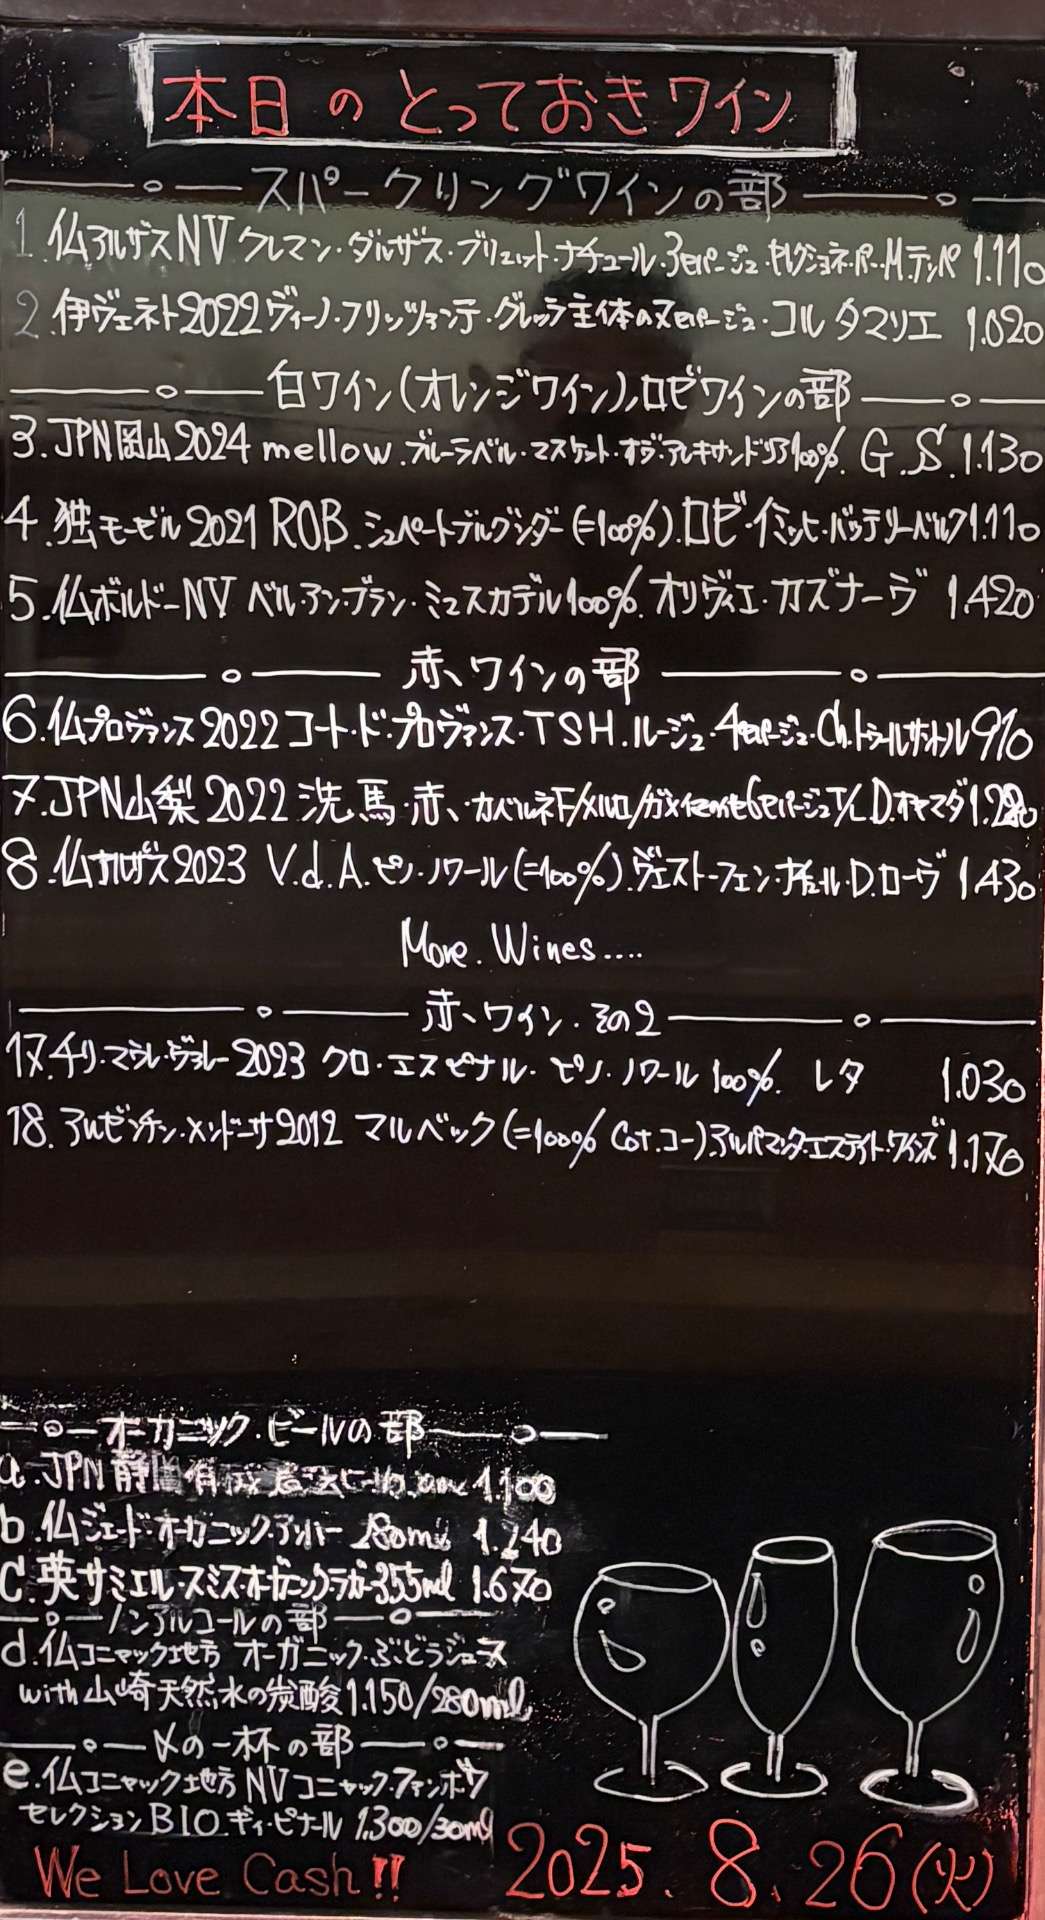 本日のとっておきワイン
スパークリングワインの部
1.仏アルザスNVクレマン・ダルザス・ブリュット・ナチュール・3セパージュ・セレクショネ・パー・M.テンペ 1.110
2.伊ヴェネト2022ヴィーノ・フリッツァンテ・グレッラ主体の又セパージュ・コルタマリエ 1.020
白ワイン(オレンジワイン)ロゼワインの部
3.JPN岡山2024 mellow.ブルーラベル・マスケット・オブ・アレキサンドリア100%. G.S.1.130
4.独モーゼル2021 ROB.シュペートブルグンダー(=100%).ロゼ・イミッヒ・バッテリーベルク1.110
5.仏ボルドーNV ベル・アン・ブラン・ミュスカデル100%.オリヴィエ・カズナーヴ 1.420
赤ワインの部
6.仏プロヴァンス2022コート・ド・プロヴァンス・TSH.ルージュ・4セパージュ・Ch.トゥールサントル910
7.JPN山梨2022洗馬・赤・カベルネF/メルロ/ガメイその他6セパージュT/L D.オヤマダ1.220
8.仏アルザス2023 V.d.A.ピノ・ノワール(=100%).ヴェスト-フェン・ナチュール・D.ローヴ 1.430
More.Wines....
赤ワイン.その2
17.チリ・マウレ・ヴァレー2023 クロ・エスピナル・ピノ・ノワール100%. レタ 1.030
18.アルゼンチン・メンドーサ2012 マルベック(=100% Cot.コー).アルパマンタ・エステイト・ワインズ1.170
オーガニック.ビールの部
a.JPN静岡 1.100
b.仏ジェード・オーガニック 1.240
c.英サミエル・スミス・オーガニック・ラガー355ml 1.670
ノンアルコールの部
d.仏コニャック地方 オーガニック・ぶどうジュース
with山崎天然水の炭酸1.150/280ml
〆の一杯の部
e.仏コニャック地方NVコニャック・ファンボワ
セレクションBIO.ギィ・ピナール 1.300/30ml
We Love Cash!!
2025.8.26(火)